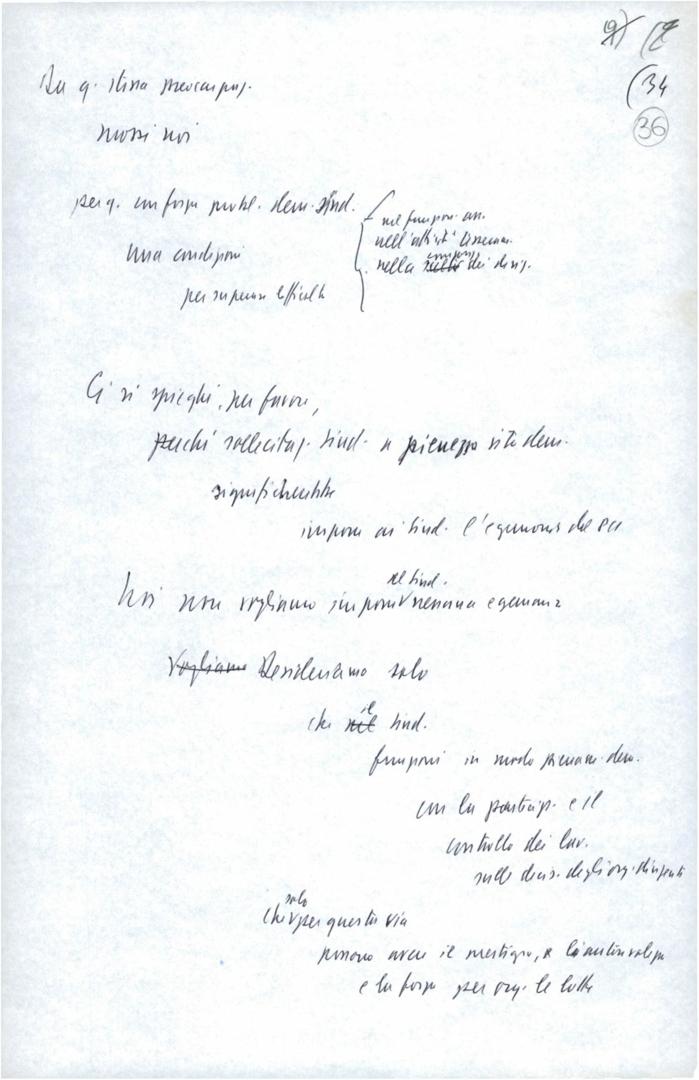 36
(34
Da q. stessa preoccupaz.
mossi noi
per q. con forza probl. dem. sind.
nel funzion. an.
nell'attività
una condizione
nella dei dirig.
per superare difficoltà
Ci si spieghi, per favore,
perché sollecitaz. sind. a pienezza vita dem.
significherebbe
imporre ai sind. l'egemonia del PCI
al sind.
Noi non vogliamo imporre nessuna egemonia
Vogliamo Desideriamo solo
il
che nel sind.
funzioni in modo pienam. dem.
con la partecip. e il
controllo dei lav.
sulle decis. degli org. dirigenti
solo
che per questa via
possono avere il prestigio, e l'autorevolezza
e la forza per org. le lotte